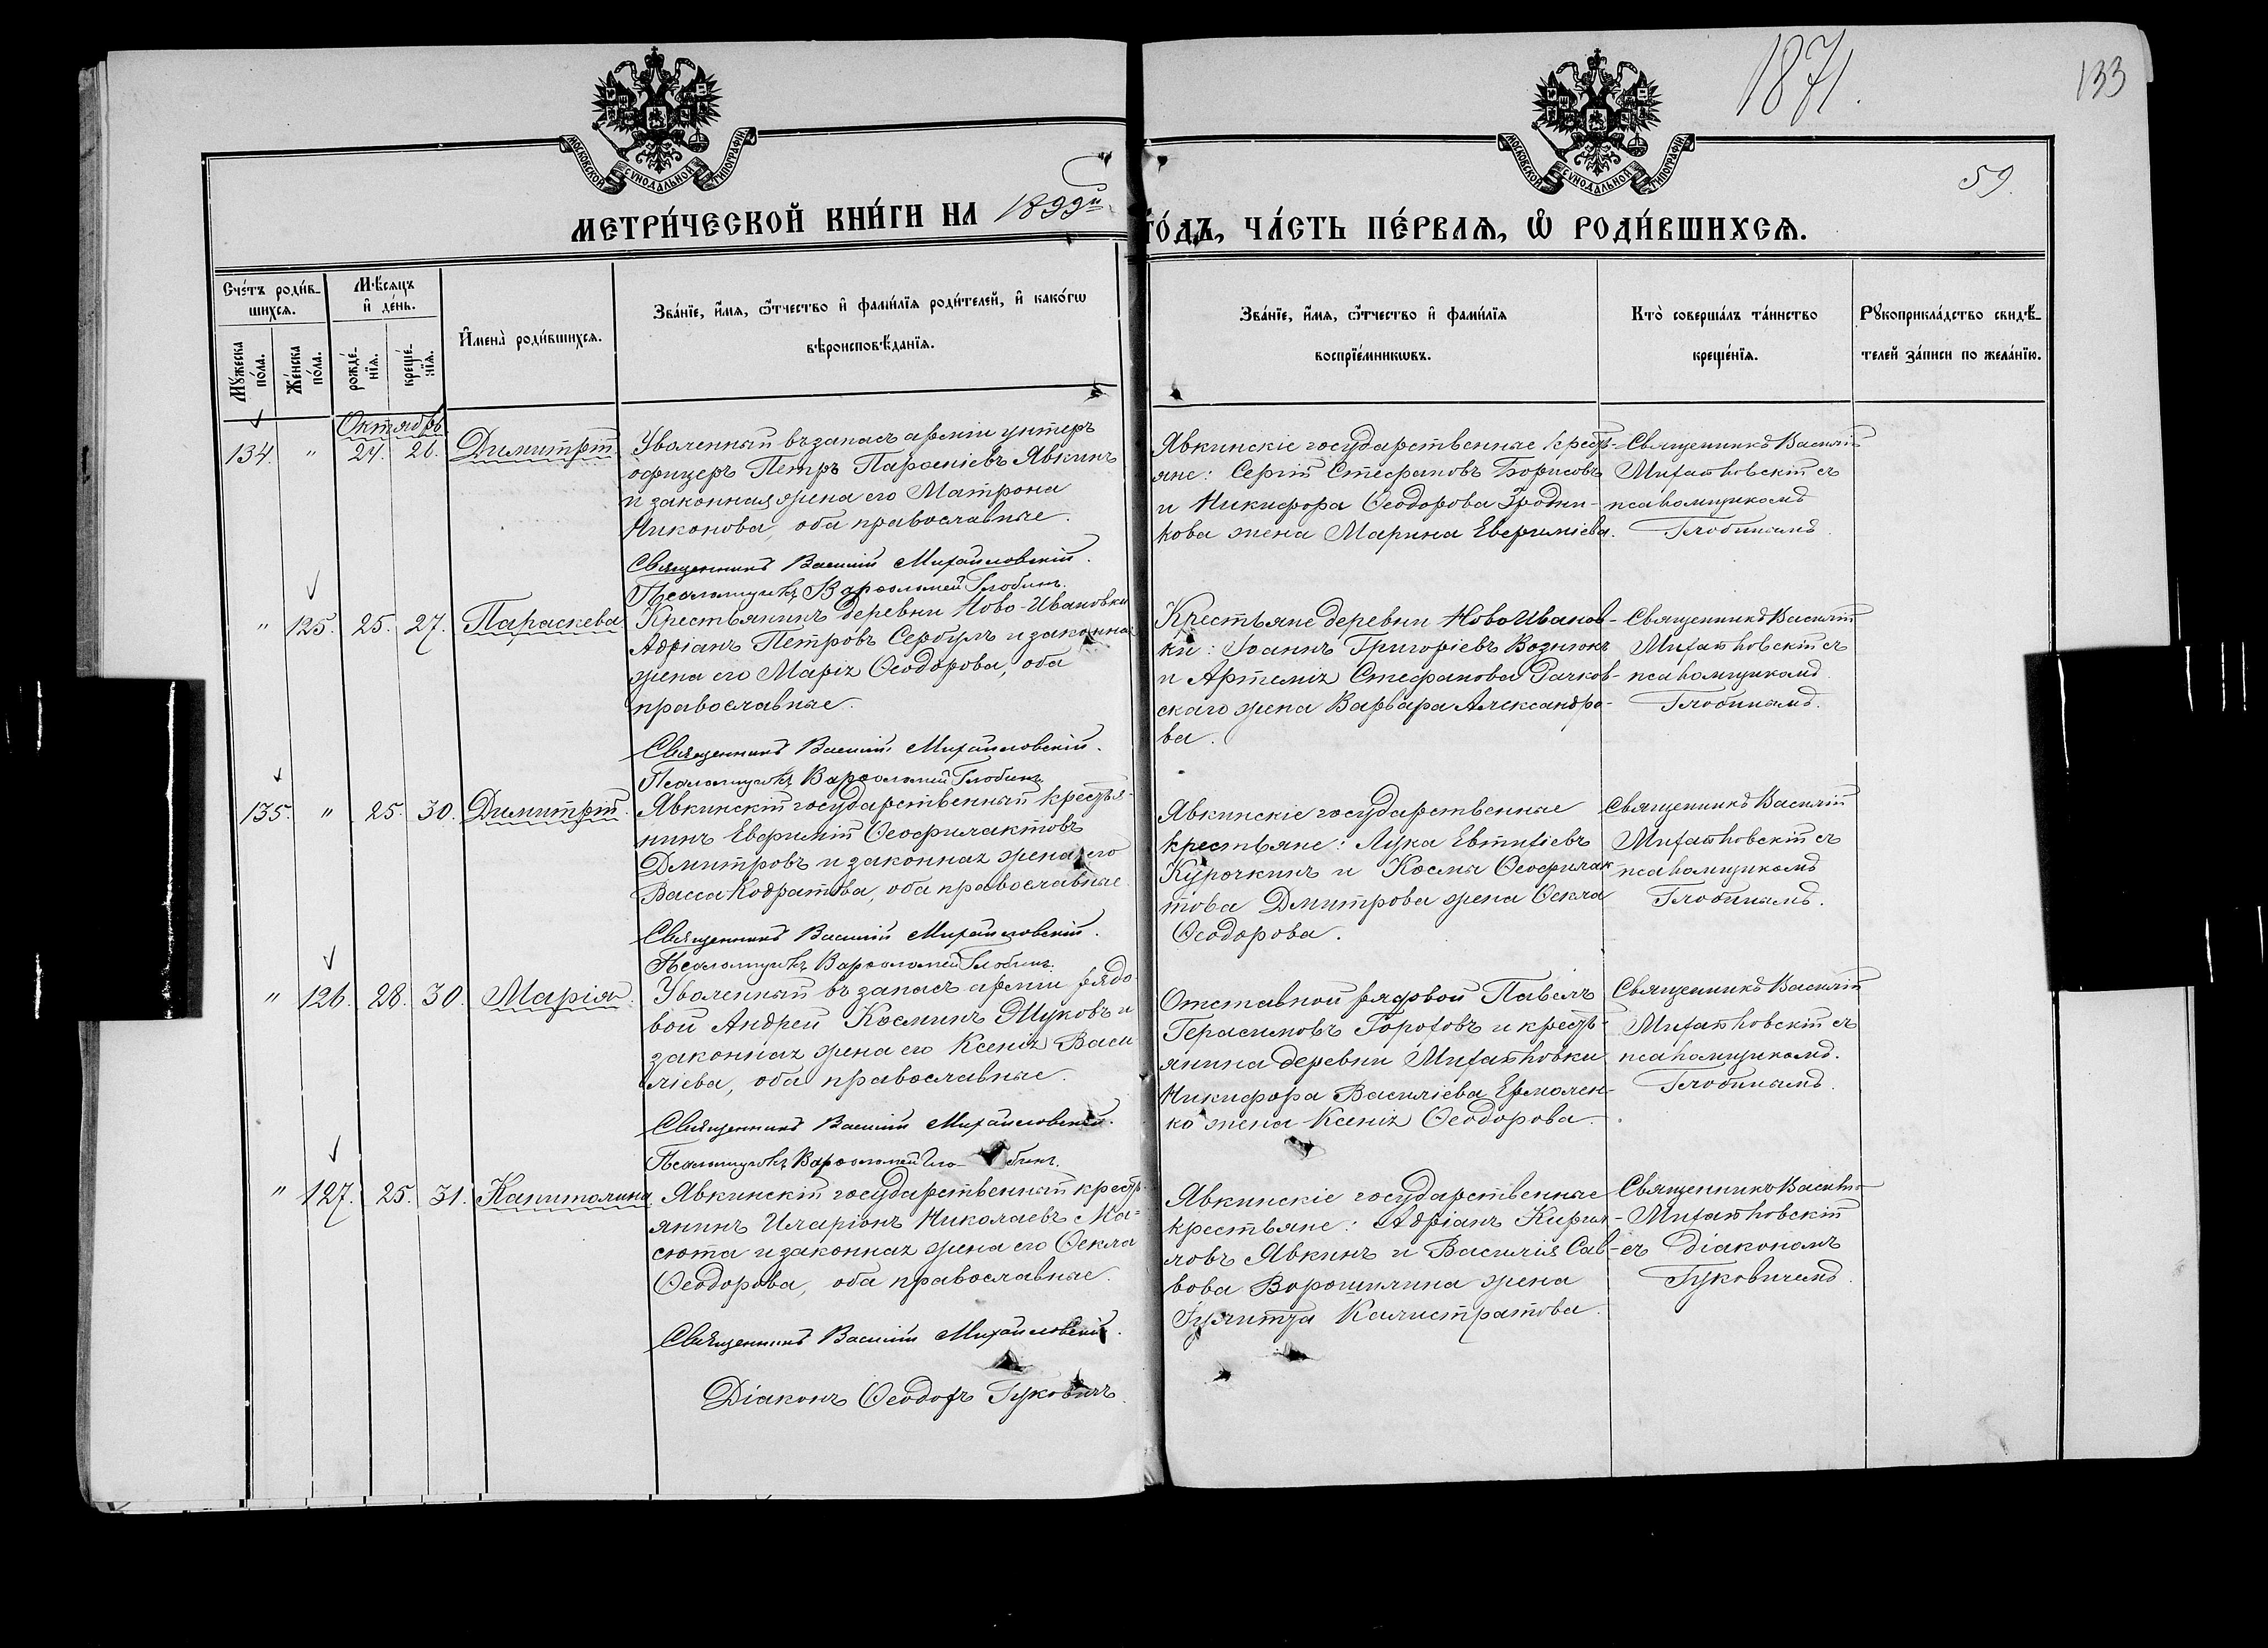 1871.
133
МОСКОВСКОЙ СѴНОДАЛЬНОЙ ТИПОГРАФІИ
МОСКОВСКОЙ СѴНОДАЛЬНОЙ ТИПОГРАФІИ
59.
МЕТРИ́ЧЕСКОЙ КНИ́ГИ НА 1899й
ГО́ДЪ, ЧА́СТЬ ПЕ́РВАѦ, Ѡ РОДИ́ВШИХСѦ.
Сче́тъ роди́в-
шихсѧ.
Мꙋ́жеска по́ла.
Же́нска по́ла.
Мѣ́сѧцъ
и де́нь.
рожде́-
нїѧ.
креще́-
нїѧ.
Имена̀ роди́вшихсѧ.
Зва́нїе, и́мѧ, ѻ́тчество и фами́лїѧ роди́телей, и како́гѡ
вѣроисповѣ́данїѧ.
Зва́нїе, и́мѧ, ѻ́тчество и фами́лїѧ
воспрїе́мникѡвъ.
Кто̀ соверша́лъ та́инство
креще́нїѧ.
Рꙋкоприкла́дство свидѣ́-
телей за́писи по жела́нїю.
Октябрь
134. " 24. 26. Димитрій.
Уволенный въ запасъ арміи унтеръ
офицеръ Петръ Пароеніевъ Явкинъ
и законная жена его Матрона
Никонова, оба православные.
Священникъ Василій Михайловскій.
Псаломщикъ Варѳоломей Глобинъ.
Явкинскіе государственные кресть-
яне: Сергій Стефановъ Борисовъ
и Никифора Ѳеодорова
кова жена Марина Евфиміева.
Священникъ Василій
Михайловскій съ
псаломщикомъ
Глобинымъ.
" 125. 25. 27. Параскева
Крестьянинъ деревни Ново-Ивановки
Адріанъ Петровъ Сербулъ и законная
жена его Марія Ѳеодорова, оба
православные.
Священникъ Василій Михайловскій.
Псаломщикъ Варѳоломей Глобинъ.
Крестьяне деревни НовоИванов-
ки: Іоаннъ Григоріевъ Вознюкъ
и Артемія Стефанова Рачков-
скаго жена Варвара Александро-
ва.
Священникъ Василій
Михайловскій съ
псаломщикомъ
Глобинымъ.
135. " 25. 30. Димитрій.
Явкинскій государственный крестья-
нинъ Евфимій Ѳеофилактовъ
Дмитровъ и законная жена его
Васса Кодратова, оба православные.
Священникъ Василій Михайловскій.
Псаломщикъ Варѳоломей Глобинъ.
Явкинскіе государственные
крестьяне: Лука Евтихіевъ
Курочкинъ и Космы Ѳеофилак-
това Дмитрова жена Ѳекла
Ѳеодорова.
Священникъ Василій
Михайловскій съ
псаломщикомъ
Глобинымъ.
" 126. 28. 30. Марія.
Уволенный въ запасъ арміи рядо-
вой Андрей Косминъ Жуковъ и
законная жена его Ксенія Васи-
ліева, оба православные.
Священникъ Василій Михайловскій.
Псаломщикъ Варѳоломей Глобинъ.
Отставной рядовой Павелъ
Герасимовъ Гороховъ и кресть-
янина деревни Михайловки
Никифора Василіева Ермолен-
ко жена Ксенія Ѳеодорова.
Священникъ Василій
Михайловскій съ
псаломщикомъ.
Глобинымъ.
" 127. 25. 31. Капитолина
Явкинскій государственный кресть-
янинъ Иларіонъ Николаевъ Ма-
сюта и законная жена его Ѳекла
Ѳеодорова, оба православные.
Священникъ Василій Михайловскій.
Діаконъ Ѳеодоръ Гуковичъ.
Явкинскіе государственные
крестьяне: Адріанъ Кирил-
ловъ Явкинъ и Василія Сав-
вова Ворошилина жена
Іулитта Калистратова.
Священникъ Василій
Михайловскій
съ діакономъ
Гуковичемъ.